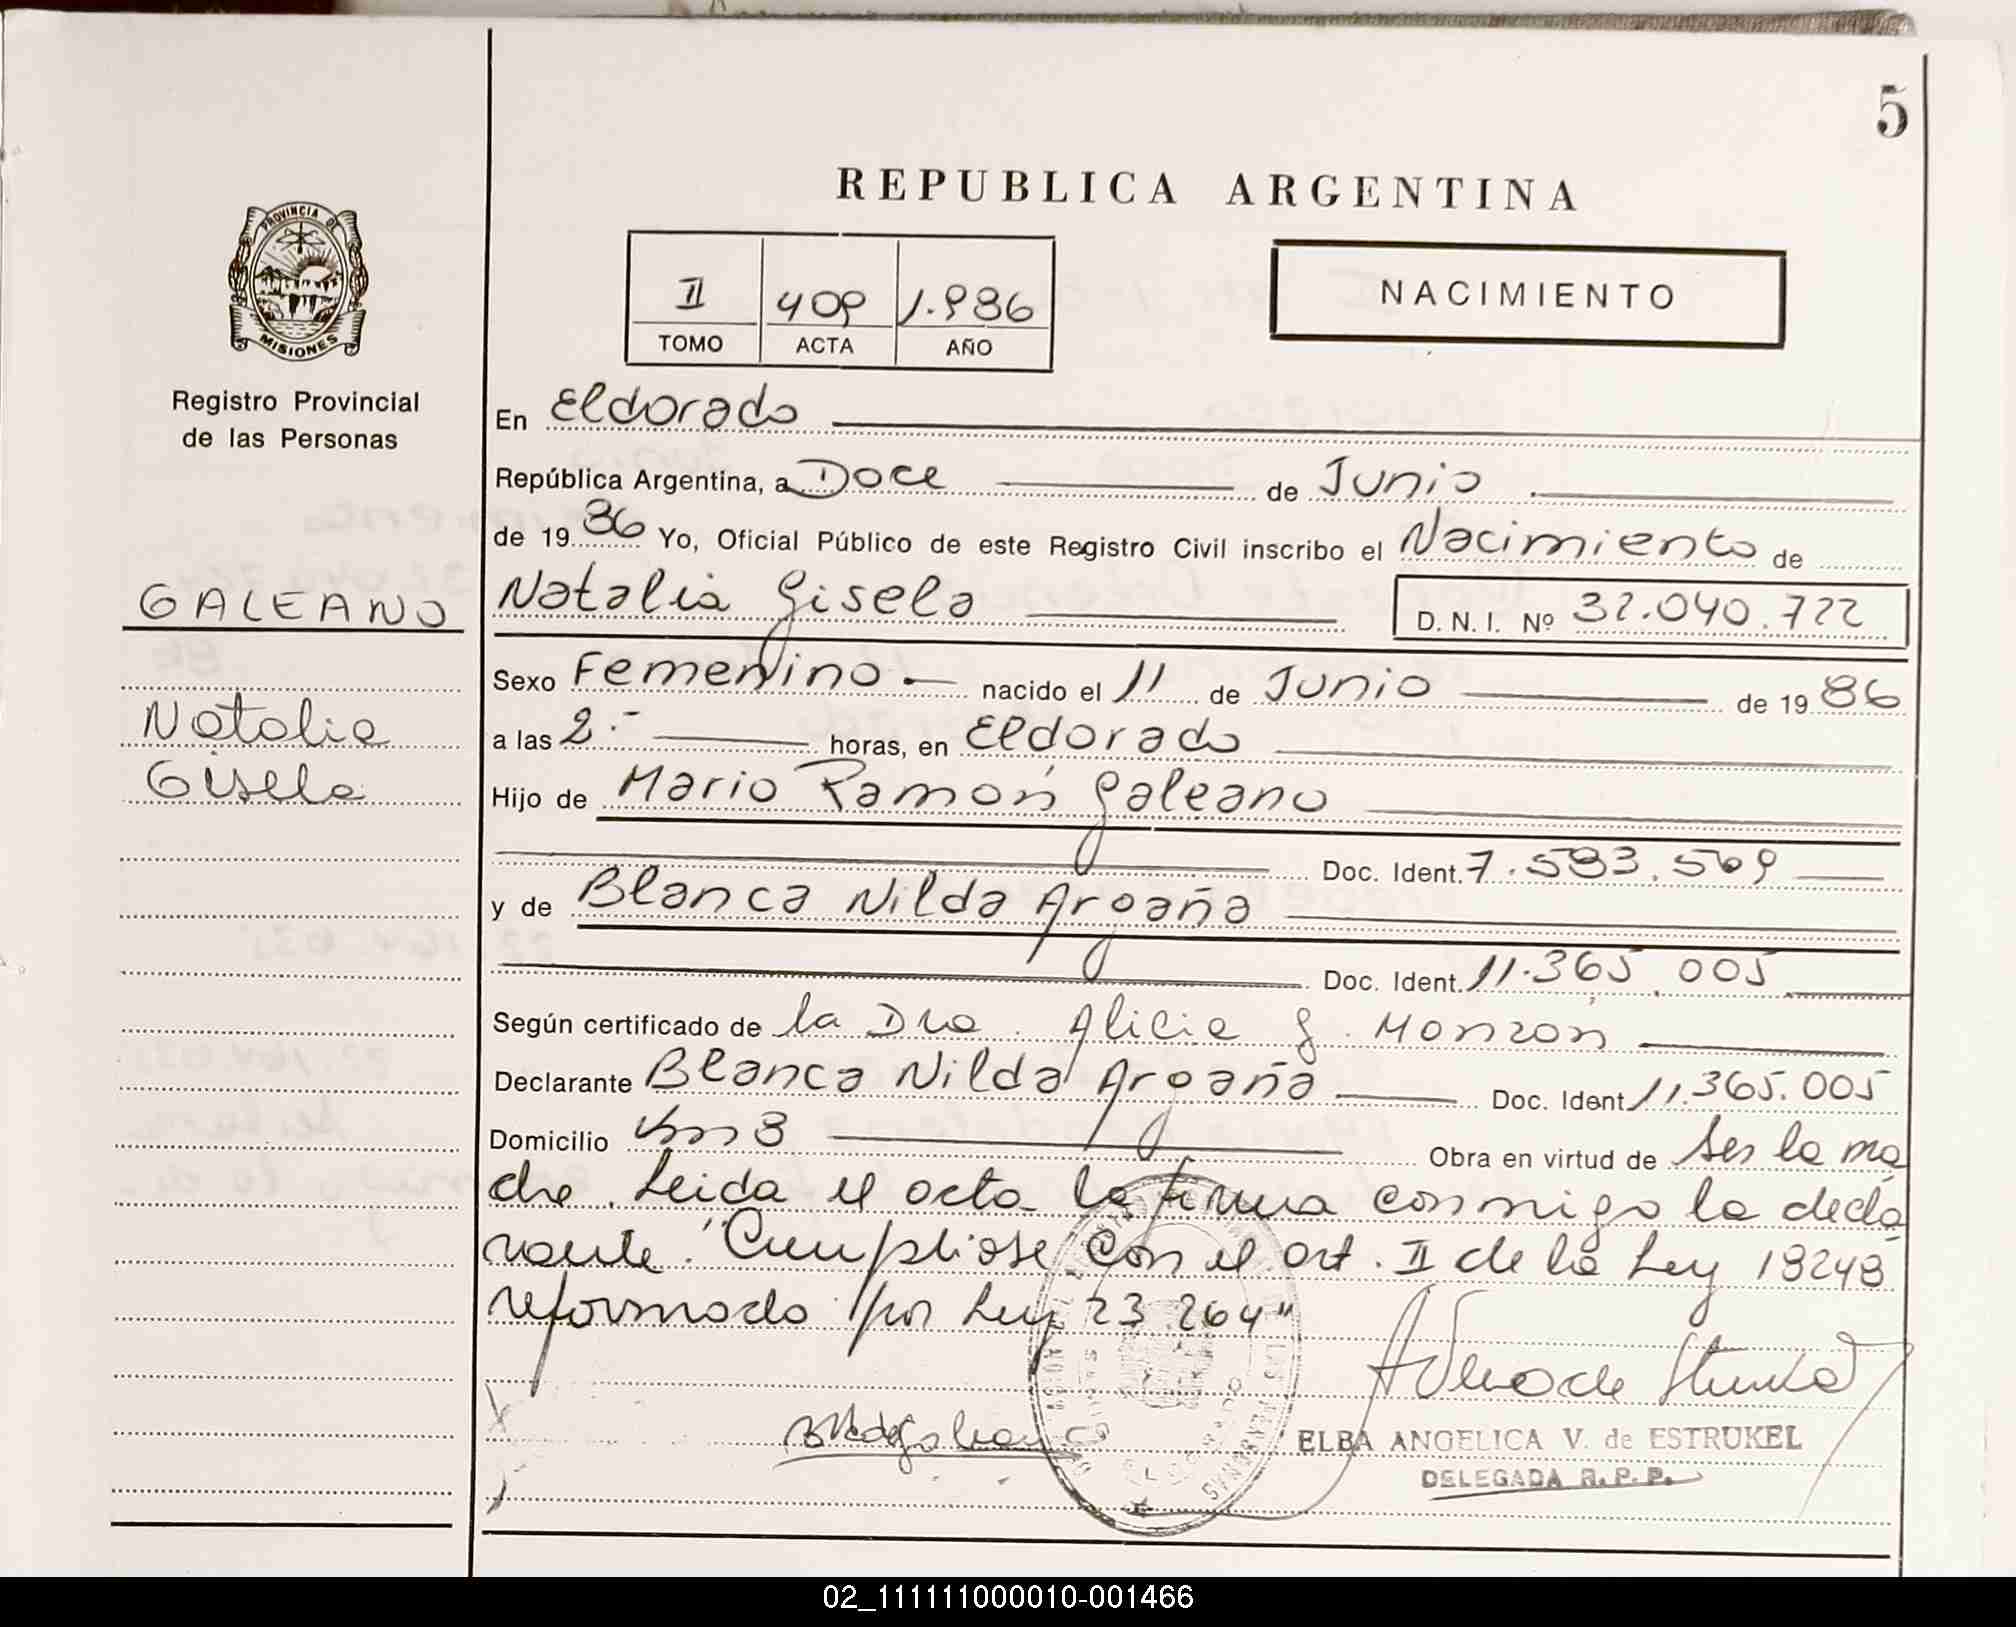 5
REPUBLICA ARGENTINA
PROVINCIA DE
MISIONES
II 409 1.986
TOMO ACTA AÑO
NACIMIENTO
Registro Provincial
de las Personas
En Eldorado
República Argentina, a Doce de Junio
de 1986 Yo, Oficial Público de este Registro Civil inscribo el Nacimiento de
GALEANO
Natalia Gisela D. N. I. Nº 32.040.722
Sexo Femenino.- nacido el 11 de Junio de 1986
Natalia
a las 2.- horas, en Eldorado
Gisela
Hijo de Mario Ramón Galeano
Doc. Ident. 7.583.569
y de Blanca Nilda Argaña
Doc. Ident. 11.365.005
Según certificado de la Dra. Alicia G. Monzón
Declarante Blanca Nilda Argaña Doc. Ident 11.365.005
Domicilio Km 8 Obra en virtud de ser la ma
dre. Leida el acta la firma conmigo la decla
rante. "Cumpliose con el art. II de la Ley 18248
reformado por Ley 23.264"
ELBA ANGELICA V. de ESTRUKEL
DELEGADA R.P.P.
02_111111000010-001466